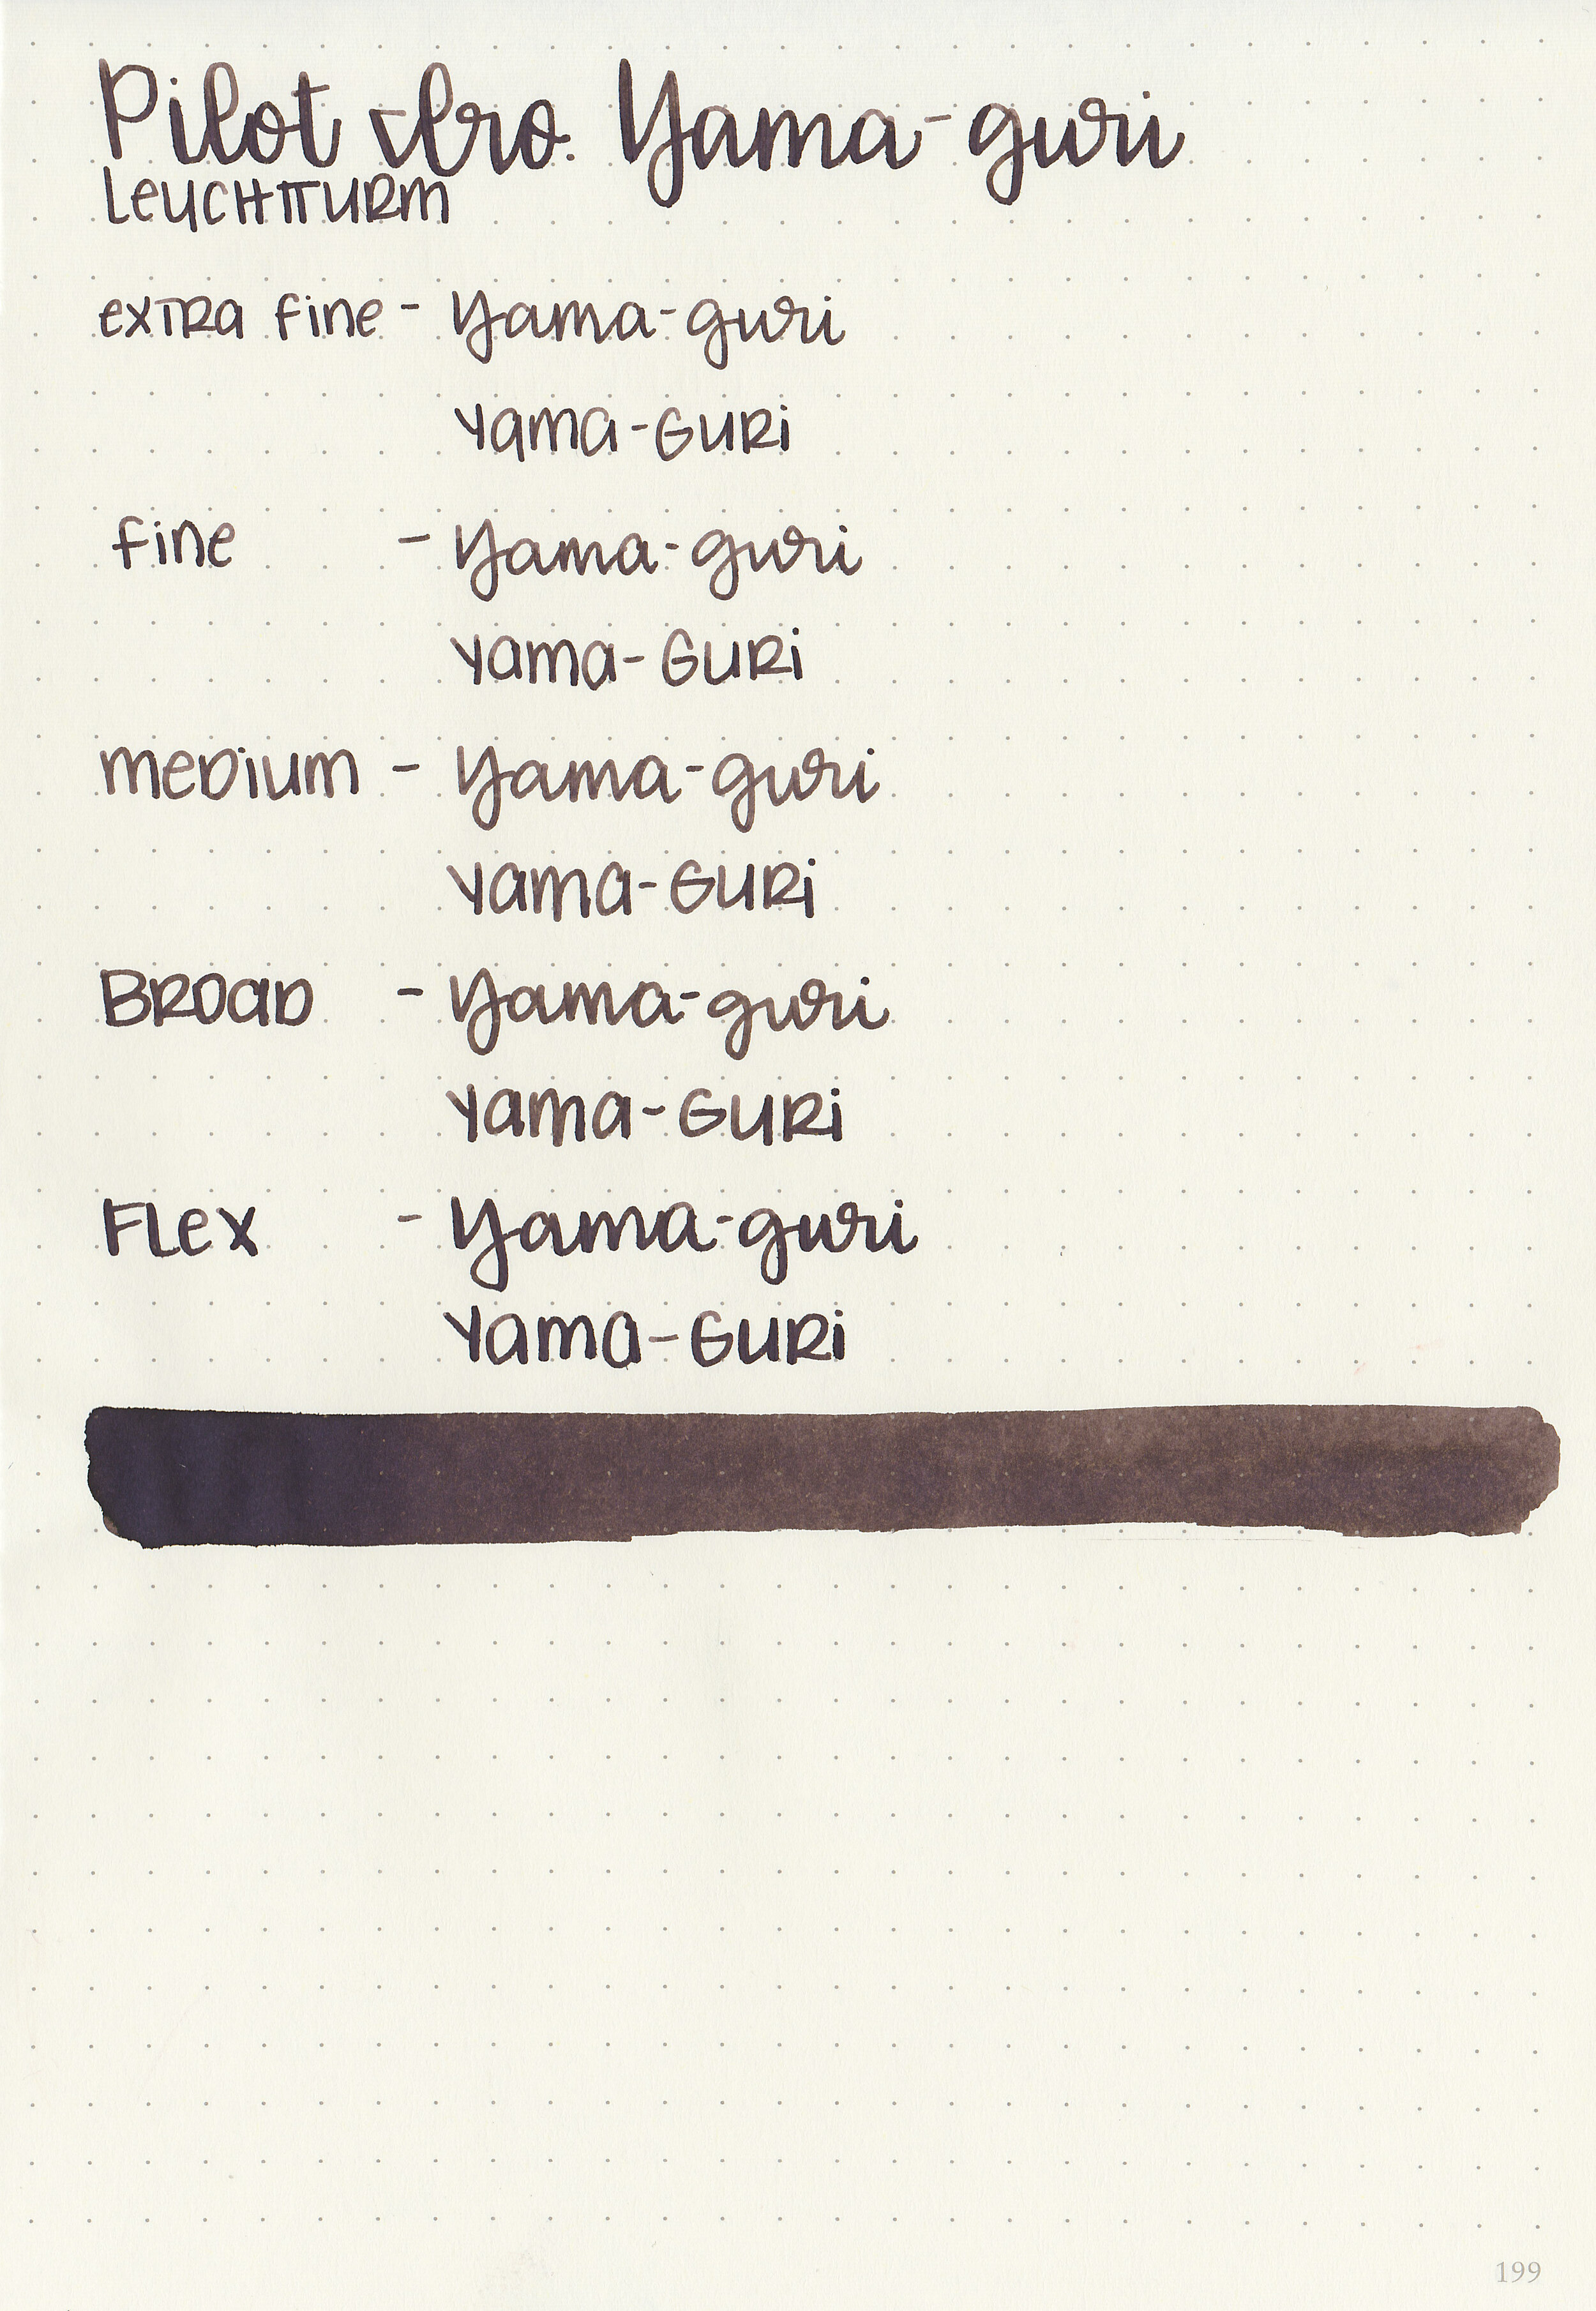 Pilot Iro. Yama-guri
Leuchtturm
extra fine - Yama-guri
Yama-Guri
fine - Yama-guri
Yama-Guri
medium - Yama-guri
Yama-Guri
Broad - Yama-guri
Yama-Guri
Flex - Yama-guri
Yama-Guri
199